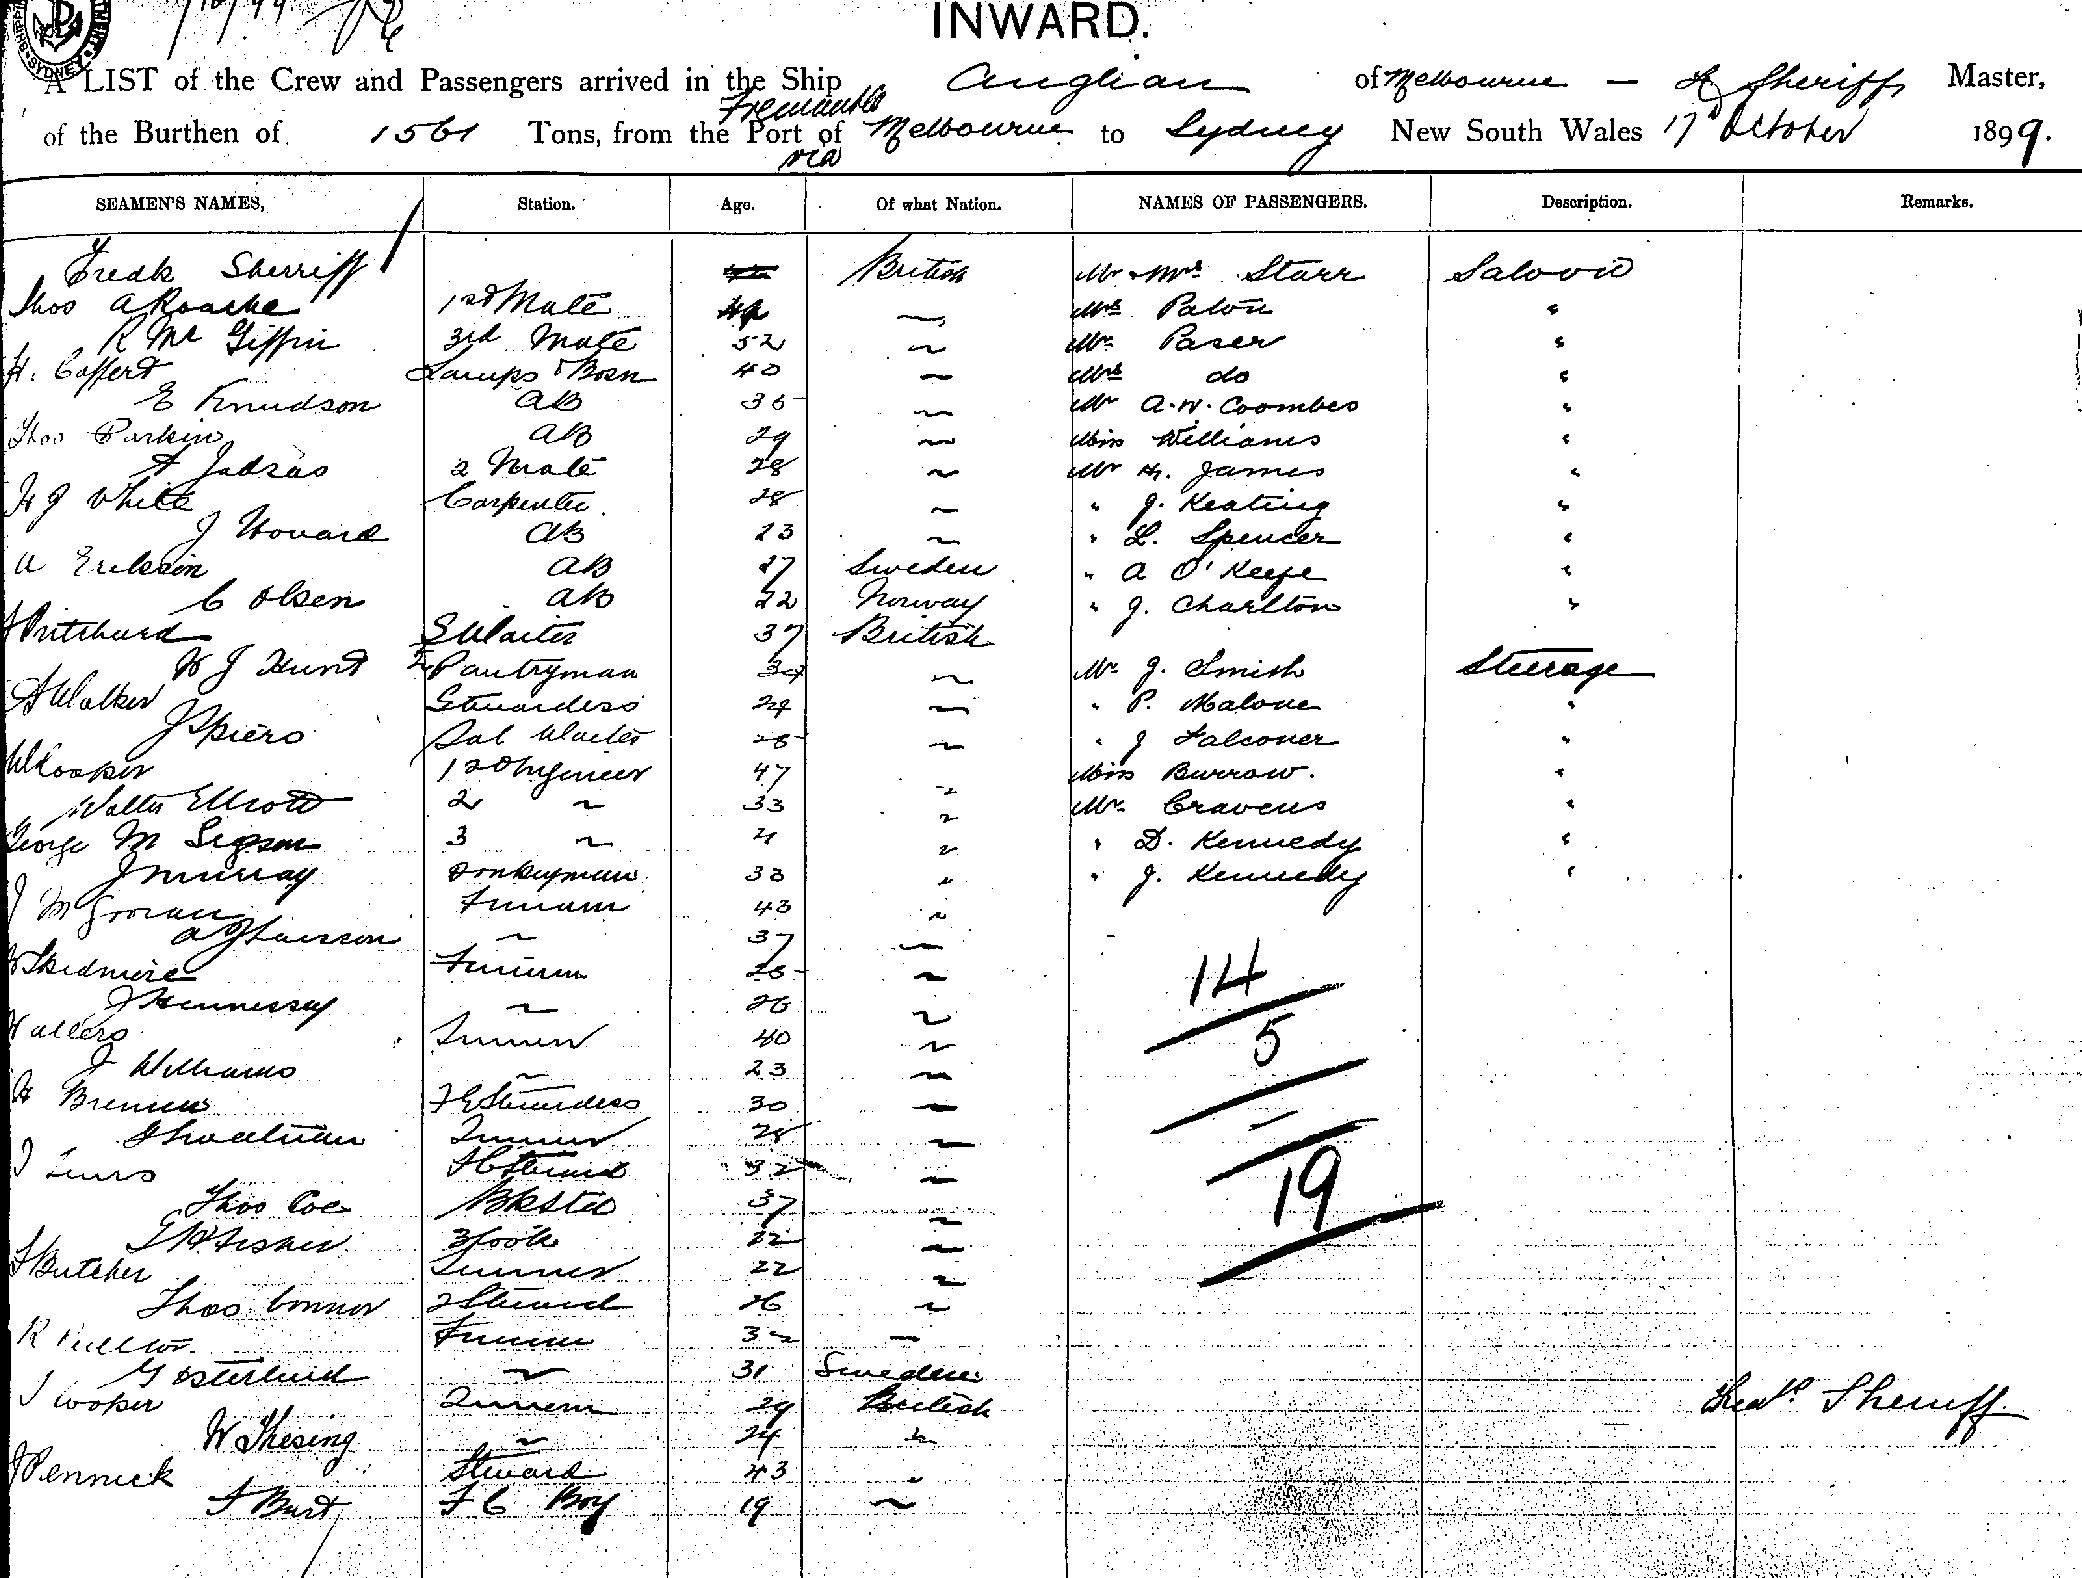 INWARD.
A LIST of the Crew and Passengers arrived in the Ship Anglian of Melbourne — Sheriff, Master,
Fremantle
of the Burthen of 1561 Tons, from the Port of Melbourne to Sydney New South Wales 17 October 1899.
via
SEAMEN'S NAMES, Station. Age. Of what Nation. NAMES OF PASSENGERS. Description. Remarks.
Fredk Sherriff British Mr & Mrs Starr Saloon
Thos A Roache 1st Mate Mrs Paton "
R Mc Giffin 3rd Mate 52 ~ Mr Paser "
H. Caffert Lamps & Bosn 40 ~ Mrs do "
E Knudson AB 35 ~ Mr A. W. Coombes "
Thos Parkin AB 29 ~ Miss Williams "
2 Mate 28 ~ Mr H. James "
H J White Carpenter 28 ~ " J. Keating "
J Howard AB 23 ~ " L. Spencer "
A Erickson AB 27 Sweden " A O'Keefe "
C Olsen AB 22 Norway " J. Charlton "
Pritchard S Waiter 37 British
W J Hunt 2 Pantryman ~ Mr J. Smith Steerage
A Walker Stewardess 24 ~ " P. Malone "
J Spiers Sal Waiter 25 ~ " J Falconer "
W Cooper 1st Engineer 47 ~ Miss Burrow. "
Walter Elliott 2 ~ 33 " Mr. Cravens "
George M 3 ~ " " D. Kennedy "
J Murray Donkeyman 33 " " J. Kennedy "
J Fireman 43 "
~ 37 ~
Skidmore Fireman 25 ~
J Hennessy ~ 26 ~
Trimmer 40 ~
J Williams ~ 23 ~
H F C Stewardess 30 ~
Trimmer 28 ~
Steward 32 ~
Thos Coe 37 ~
Fisher 3 Cook 22 ~
Butcher Trimmer 22 ~
Thos Connor 2 Steward 26 ~
R Fireman 32 ~
G Osterlund ~ 31 Sweden
J Cooper Trimmer 29 British
W Thesing ~ 24 "
J Pennick Steward 43 "
F Burt F C Boy 19 ~
14
5
19
Fredk Sherriff